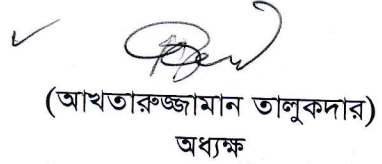 (আখতারুজ্জামান তালুকদার)
অধ্যক্ষ